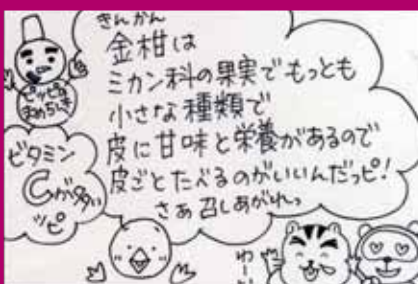 きんかん
金柑は
ミカン科の果実でもっとも
小さな種類で
皮に甘味と栄養があるので
皮ごとたべるのがいいんだっピ!
さあ召しあがれっ
ビタミン
Cが多い
ッピ
わーい